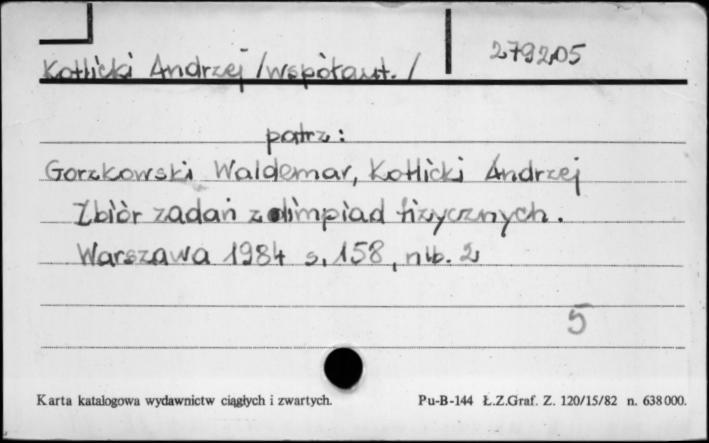 279205
Kotlicki Andrzej /współaut./
patrz:
Gorzkowski Waldemar, Kotlicki Andrzej
Zbiór zadań z olimpiad fizycznych.
Warszawa 1984 s. 158, nlb. 2
5
Karta katalogowa wydawnictw ciągłych i zwartych. Pu-B-144 Ł.Z.Graf. Z. 120/15/82 n. 638 000.